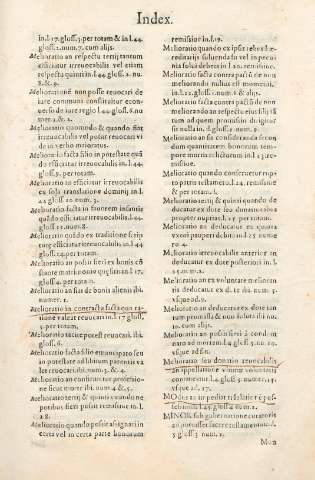 Index.
in.l.17.gloss.3.per totam & in l.44
gloss.2.num.7. cum alijs.
Melioratio an respectu tertij tantum
efficiatur irreuocabilis vel etiam
respectu quinti in.l.44 gloss.2. nu.
&
Meliorationē non posse reuocari de
iure communi constituitur econ-
uerso de iure regio l.44 gloss.6. nu
mer. 2. &
Melioratio quomodo & quando fiat
irreuocabilis vel possit reuocari vi
de in verbo maioratus.
Melioratio facta filio in potestate quā
do efficiatur irreuocabilis in.l.44
gloss.5. per totam.
Melioratio an efficiatur irreuocabilis
ex sola translatione dominij in.l.
gloss.10 num. 3.
Melioratio facta in fauorem infantis
quādo efficiatur irreuocabilis.l.44
gloss. num.8.
Melioratio quādo ex traditione scrip
turę efficiatur irreuocabilis.in.l.44
gloss.14.per totam.
Melioratio an possit fieri ex bonis cō
stante matrimonio quęsitis in.l.17.
gloss.4. per totam.
Melioratio an fiat de bonis alienis ibi.
numer. 1.
Melioratio in contractu facta ex
tione valeat reuocari in.l.17 gloss.
5. per totam.
Melioratio tacite potest reuocari. ibi.
gloss.6.
Melioratio facta filio emancipato seu
in potestate ad libitum parentis va
let reuocari. ibi.num.3. & 4.
Melioratio an confirmetur professio-
ne sicut morte ibi. num.4 & 5.
Melioratio tertij & quinti quando ne
potibus fieri possit transire in.l.
18.
Melioratio quando possit assignari in
certa vel in certa parte bonorum
remissiue in.l.19.
Melioratio quando ex ipsis rebus hæ-
reditarijs soluenda sit vel in pecu-
nia solui debeat in.l.20. remissiue.
Melioratio facta contra pactū de non
meliorando nullius est momenti.
in.l.22. gloss.1. num.2. & alijs.
Melioratio facta contra pactū de non
meliorādo an respectu eius filij tā
tum ad quem promissio dirigitur
sit nulla in. d.gloss. num. 9.
Melioratio an sit consideranda secun
dum quantitatem bonorum tem-
pore mortis testatorum in.l.23.re-
missiue.
Melioratio quando conseruetur rup-
to patris testamento.l.24. remissiue
& per tot.l.
Melioratio tertij & quinti quando de
ducatur ex dote seu donationibus
propter nuptias.l.25.per totam.
Melioratio an deducatur ex quarta
vxori pauperi debita in.l. nume
ro 4.
Melioratio irreuocabilis anterior an
deducatur ex dote posteriori in.l.
Melioratio an ex voluntate melioran
tis deducatur ex dote ibi. num. 5.
vsque.ad.9.
Melioratio an deducatur ex dote tan
tum promissa & non tradita ibi nu
10. cum alijs.
Melioratio an possit fieri à condem-
nato ad mortem.l.31. num.
vsque adfin.
Melioratio seu donatio reuocabilis
an appellatione vltimæ voluntatis
contineatur l.40 gloss.5. numer.15.
vsque ad. 17.
in.l.45 gloss.4 num.2.
MINOR sub gubernatione curatoris
an præsumatur esse tam lamentis
.5 gloss 3 num.2.
Mon